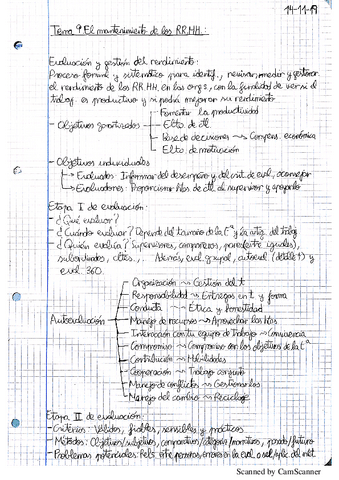 14-11-19
Tema 9. El mantenimiento de los RR.HH.:
Evaluación y gestión del rendimiento:
Proceso formal y sistemático para identif., revisar, medir y gestionar
el rendimiento de los RR.HH. en las orgs, con la finalidad de ver si el
trabaj. es productivo y si podrá mejorar su rendimiento
Fomentar la productividad
- Objetivos
Elto. de
Base de decisiones → Compens. económica
Elto. de motivación
- Objetivos individuales
→ Evaluados: Informar del desempeño y del crit. de eval, aconsejar
→ Evaluadores: Proporcionar de al supervisor y apoyarlo
Etapa I de evaluación:
- ¿Qué evaluar?
- ¿Cuándo evaluar? Depende del tamaño de la Eª y la antig. del trabaj
- ¿Quién evalúa? Supervisores, compañeros, pares (entre iguales),
subordinados, cltes, ... Además eval. grupal, autoeval y
eval. 360.
Organización → Gestión del t
Responsabilidad → Entregas en t y forma
Conducta → Ética y honestidad
Manejo de recursos → Aprovechar las
Autoevaluación
Interacción con tu equipo de trabajo → Convivencia
Compromiso → Compromiso con los objetivos de la Eª
Contribución → Habilidades
Cooperación → Trabajo conjunto
Manejo de conflictos → Gestionarlos
Manejo del cambio → Reciclaje
Etapa II de evaluación:
- Criterios: Válidos, fiables, sensibles y prácticos
- Métodos: Objetivos/subjetivos, comparativos/ pasado/futuro
- Problemas potenciales: entre personas, errores en la eval. o del
Scanned by CamScanner